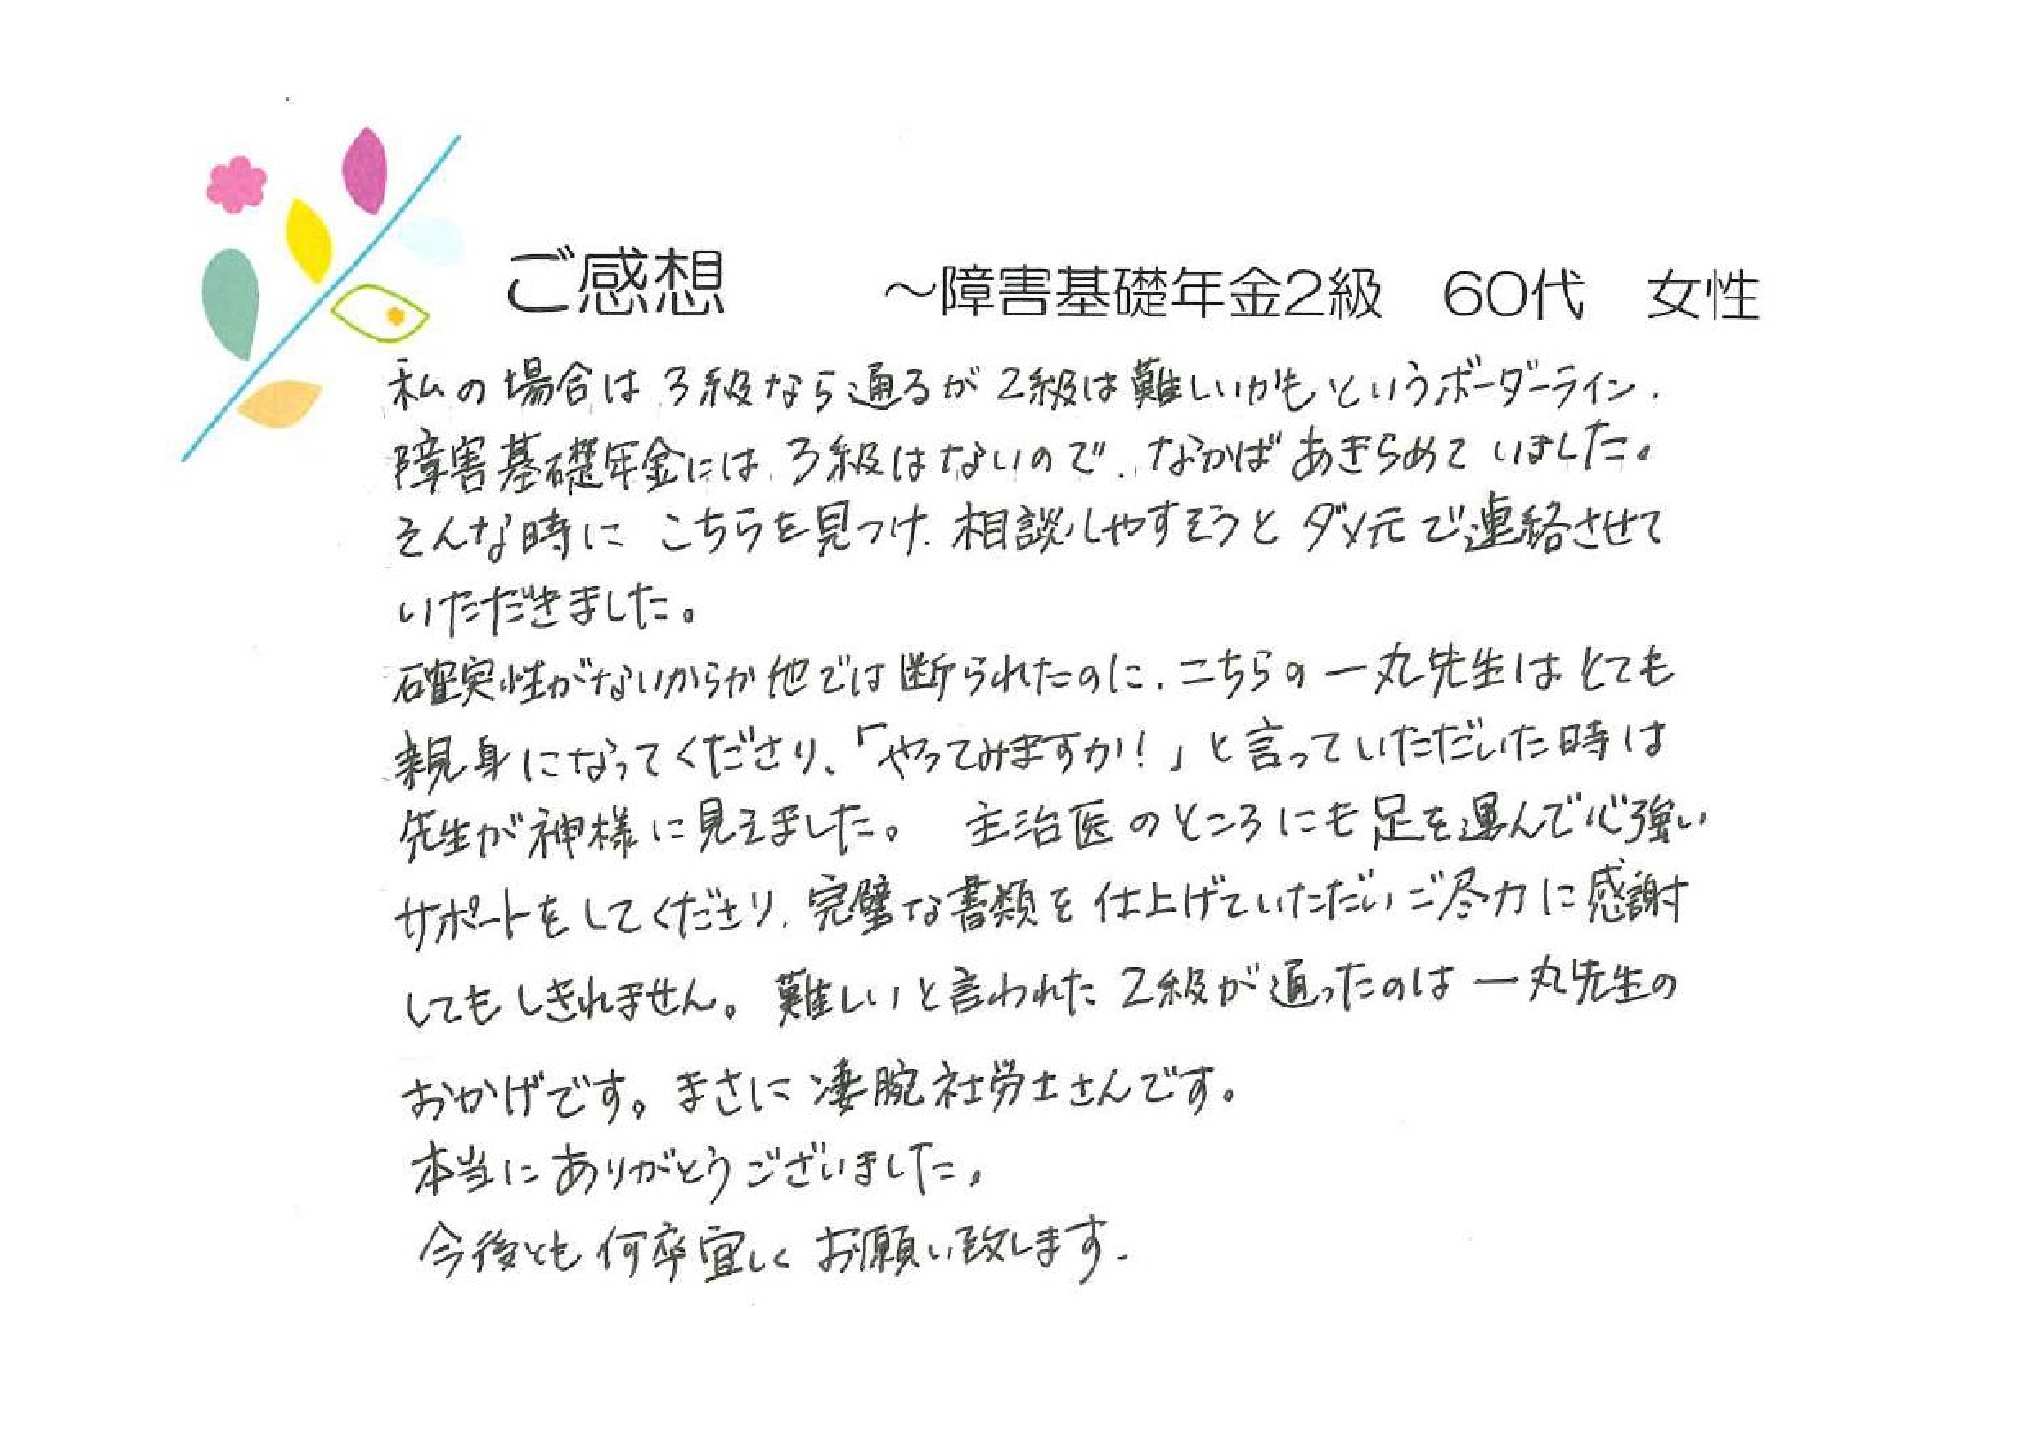 ご感想　～障害基礎年金2級　60代　女性
私の場合は3級なら通るが2級は難しいかもというボーダーライン.
障害基礎年金には、3級はないので、なかばあきらめていました。
そんな時に こちらを見つけ、相談しやすそうと ダメ元で連絡させて
いただきました。
確実性がないからか他では断られたのに、こちらの一丸先生はとても
親身になってくださり、「やってみますか！」と言っていただいた時は
先生が神様に見えました。 主治医のところにも足を運んで心強い
サポートをしてくださり、完璧な書類を仕上げていただいご尽力に感謝
してもしきれません。難しいと言われた2級が通ったのは一丸先生の
おかげです。まさに凄腕社労士さんです。
本当にありがとうございました。
今後とも何卒宜しくお願い致します.